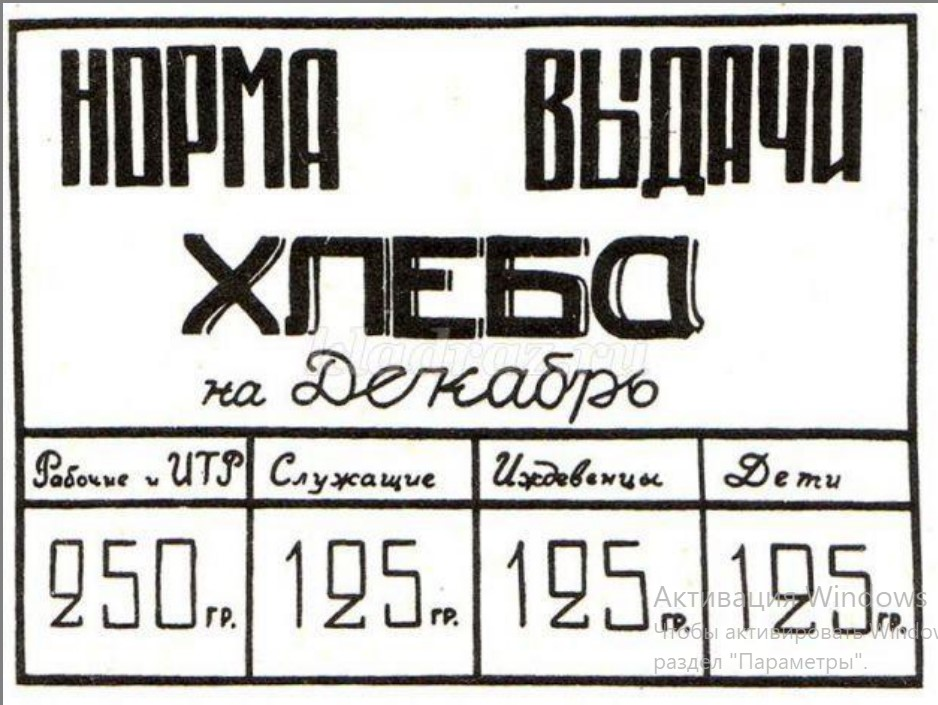 НОРМА ВЫДАЧИ
ХЛЕБА
kladraz.ru
на Декабрь
Рабочие и ИТР Служащие Иждевенцы Дети
250 гр. 125 гр. 125 гр. 125 гр.
Активация Windows
Чтобы активировать Window
раздел "Параметры".